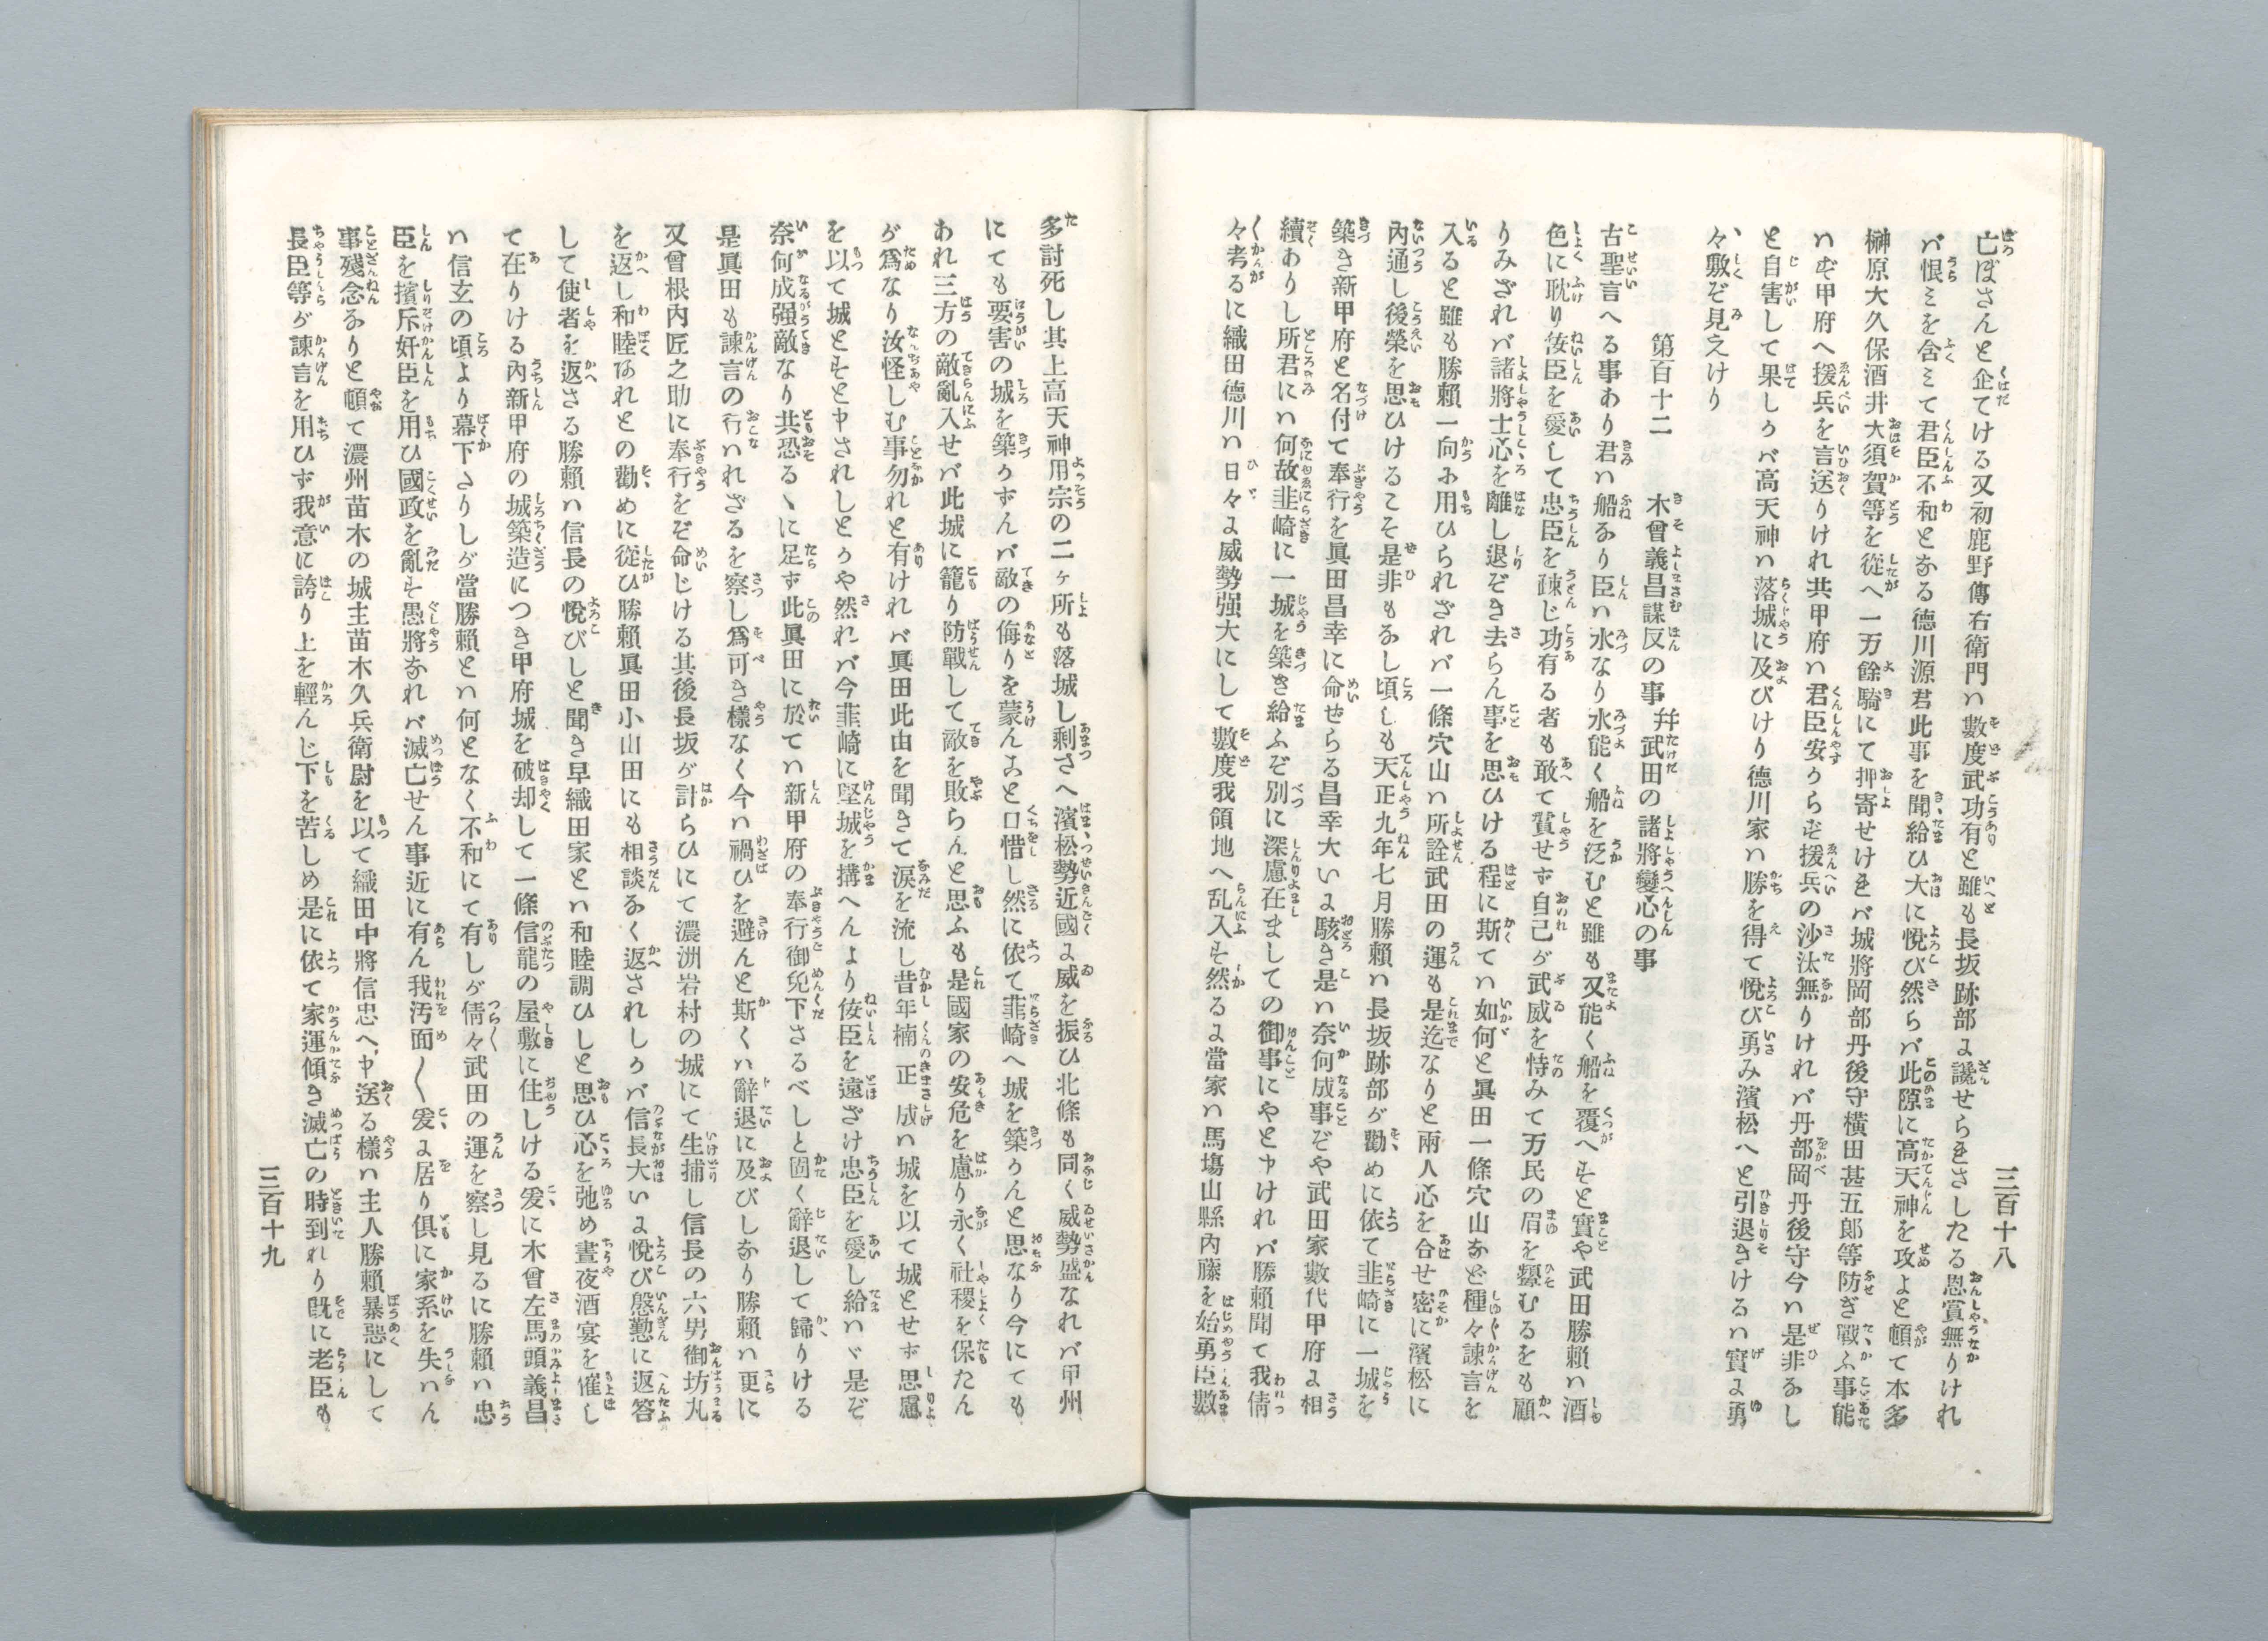 三百十八
亡ぼさんと企てける又初鹿野傳右衛門ハ數度武功有と雖も長坂跡部よ讒せらきさしたる恩賞無りけれ
バ恨ミを含ミて君臣不和となる德川源君此事を聞給ひ大に悅び然らバ此隙に高天神を攻よと頓て本多
榊原大久保酒井大須賀等を從へ一万餘騎にて押寄せけきバ城將岡部丹後守橫田甚五郎等防ぎ戰ふ事能
ハず甲府へ援兵を言送りけれ共甲府ハ君臣安からず援兵の沙汰無りけれバ丹部岡丹後守今ハ是非なし
と自害して果しかバ高天神ハ落城に及びけり德川家ハ勝を得て悅び勇み濱松へと引退きけるハ實よ勇
々敷ぞ見えけり
第百十二 木曾義昌謀反の事 幷武田の諸將變心の事
古聖言へる事あり君ハ船なり臣ハ水なり水能く船を泛むと雖も又能く船を覆へすと實や武田勝賴ハ酒
色に耽り侫臣を愛して忠臣を疎じ功有る者も敢て賞せず自己が武威を恃みて万民の眉を顰むるをも顧
りみざれバ諸將士心を離し退ぞき去らん事を思ひける程に斯てハ如何と眞田一條穴山など種々諫言を
入ると雖も勝賴一向お用ひられざれバ一條穴山ハ所詮武田の運も是迄なりと兩人心を合せ密に濱松に
內通し後榮を思ひけるこそ是非もなし頃しも天正九年七月勝賴ハ長坂跡部が勸めに依て韭崎に一城を
築き新甲府と名付て奉行を眞田昌幸に命ぜらる昌幸大いよ駭き是ハ奈何成事ぞや武田家數代甲府よ相
續ありし所君にハ何故韭崎に一城を築き給ふぞ別に深慮在ましての御事にやと申けれバ勝賴聞て我倩
々考るに織田德川ハ日々よ威勢强大にして數度我領地へ乱入す然るよ當家ハ馬塲山縣內藤を始勇臣數
多討死し其上高天神用宗の二ヶ所も落城し剩さへ濱松勢近國よ威を振ひ北條も同く威勢盛なれバ甲州
にても要害の城を築かずんバ敵の侮りを蒙んおと口惜し然に依て韭崎へ城を築かんと思なり今にても
われ三方の敵亂入せバ此城に籠り防戰して敵を敗らんと思ふも是國家の安危を慮り永く社稷を保たん
が爲なり汝怪しむ事勿れと有けれバ眞田此由を聞きて淚を流し昔年楠正成ハ城を以て城とせず思慮
を以て城とすと申されしとかや然れバ今韭崎に堅城を搆へんより侫臣を遠ざけ忠臣を愛し給ハヾ是ぞ
奈何成强敵なり共恐るヽに足らず此眞田に於てハ新甲府の奉行御免下さるべしと固く辭退して歸りける
是眞田も諫言の行ハれざるを察し爲可き樣なく今ハ禍ひを避んと斯くハ辭退に及びしなり勝賴ハ更に
又曾根內匠之助に奉行をぞ命じける其後長坂が計らひにて濃洲岩村の城にて生捕し信長の六男御坊丸
を返し和睦あれとの勸めに從ひ勝賴眞田小山田にも相談なく返されしかバ信長大いよ悅び慇懃に返答
して使者を返さる勝賴ハ信長の悅びしと聞き早織田家とハ和睦調ひしと思ひ心を弛め晝夜酒宴を催し
て在りける內新甲府の城築造につき甲府城を破却して一條信龍の屋敷に住しける爰に木曾左馬頭義昌
ハ信玄の頃より幕下さりしが當勝賴とハ何となく不和にて有しが倩々武田の運を察し見るに勝賴ハ忠
臣を擯斥奸臣を用ひ國政を亂す愚將なれバ滅亡せん事近に有ん我汚面〱爰よ居り俱に家系を失ハん
事殘念なりと頓て濃州苗木の城主苗木久兵衛尉を以て織田中將信忠へ申送る樣ハ主人勝賴暴惡にして
長臣等が諫言を用ひず我意に誇り上を輕んじ下を苦しめ是に依て家運傾き滅亡の時到れり既に老臣も
三百十九